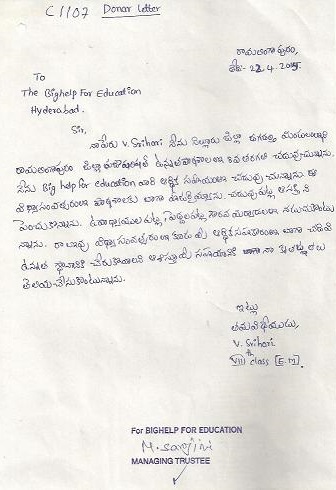 C1107 Donar Letter
రామలింగాపురం,
To
The Bighelp For Education
Hyderabad.
Sir,
నాపేరు V. Srihari నేను నెల్లూరు జిల్లా
రామలింగాపురం జిల్లా ఉన్నత పాఠశాలలో 8వ తరగతి చదువుచున్నాను.
నేను Big help for education వారి ఆర్థిక సహాయంతో చదువు చున్నాను. ఈ
విద్యాసంవత్సరంలో పాఠశాలకు బాగా చదువుపట్ల ఆసక్తిని
పెంచుకొన్నాను. ఉపాధ్యాయులపట్ల, పెద్దలపట్ల గౌరవ మర్యాదలతో నడుచుకొంటు
న్నాను. రాబోవు విద్యా సంవత్సరంలో కూడా మీ ఆర్థిక సహకారంతో బాగా చదివి
ఉన్నత స్థానానికి చేరుకోవాలని మీ సహాయానికి నా కృతజ్ఞతలు
తెలియచేసుకొంటున్నాను.
ఇట్లు
తమ విధేయుడు,
V. Srihari
VIII th class [E.M].
For BIGHELP FOR EDUCATION
MANAGING TRUSTEE